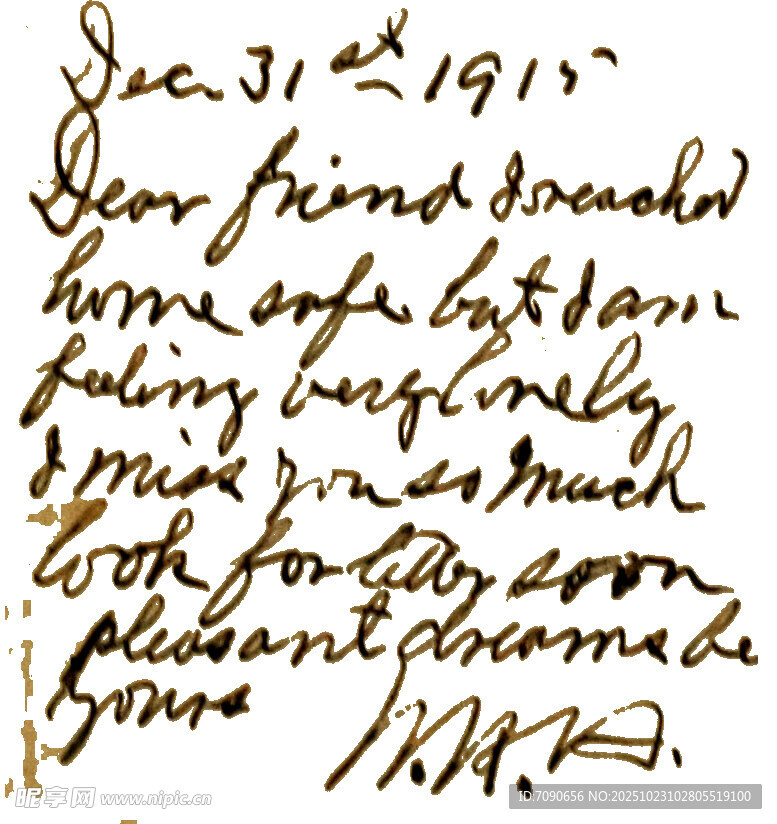 Dec 31st 1915
Dear friend I reached
home safe but I am
feeling very lonely
I miss you so much
look for letter soon
pleasant dreams be
yours
昵享网 www.nipic.cn
ID:7090656 NO:20251023102805519100